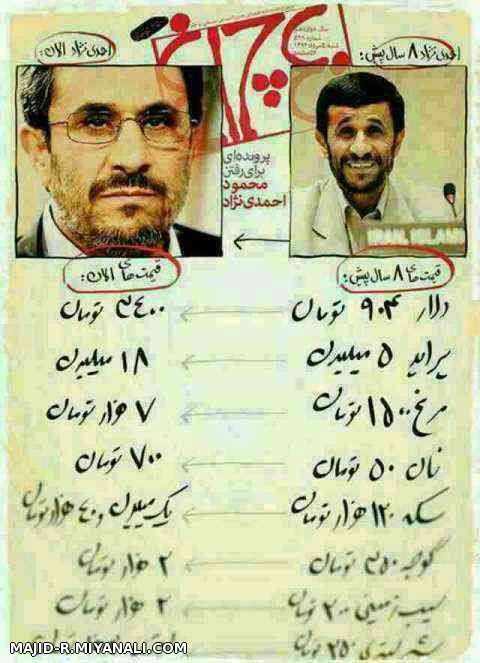 چلچراغ
سال دوازدهم
احمدی نژاد ۸ سال پیش:
احمدی نژاد الان:
پرونده‌ای
برای رفتن
محمود
احمدی‌نژاد
IRAN, ISLAMI
قیمت های ۸ سال پیش:
قیمت های الان:
دلار ۹۰۴ تومان
۳۴۰۰ تومان
پراید ۵ میلیون
۱۸ میلیون
مرغ ۱۵۰۰ تومان
۷ هزار تومان
نان ۵۰ تومان
۷۰۰ تومان
سکه ۱۲۰ هزار تومان
یک میلیون و ۴۰ هزار تومان
گوجه ۳۵۰ تومان
۲ هزار تومان
سیب زمینی ۲۰۰ تومان
۲ هزار تومان
۲۵۰ تومان
MAJID-R.MIYANALI.COM